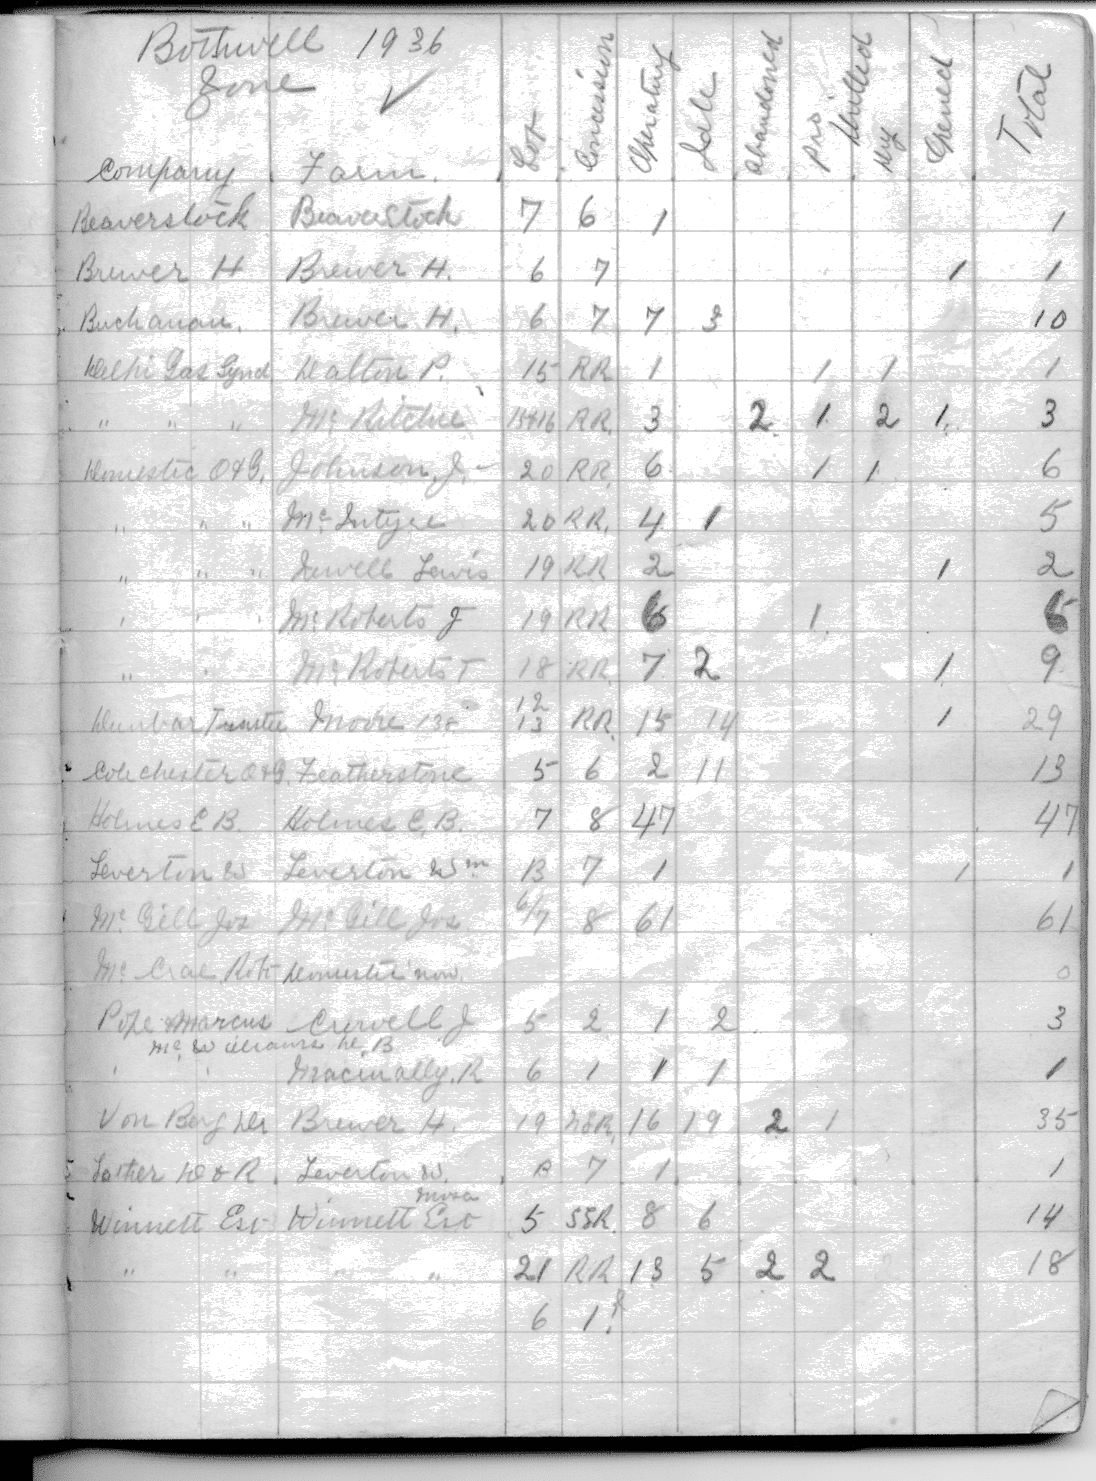 Bothwell 1936
Zone ✓
Company Farm. Lot Concession Operating Idle Abandoned Pro Drilled Dry Opened Total
Beaverstock Beaverstock 7 6 1 1
Brewer H Brewer H. 6 7 1 1
Buchanan. Brewer H. 6 7 7 3 10
Delhi Gas Synd Dalton P. 15 RR 1 1 1 1
" " " Mc Ritchie 15+16 RR. 3 2 1 2 1 3
Domestic O&G. Johnson, J. 20 RR. 6 1 1 6
" " " Mc Intyre 20 RR. 4 1 5
" " " Newell Lewis 19 RR 2 1 2
" " " Mc Roberts J 19 RR 6 1 6
" " Mc Roberts T 18 RR. 7 2 1 9
Dunbar Trustee Moore 12 13 RR. 15 14 1 29
Colchester O&G. Featherstone 5 6 2 11 13
Holmes E B. Holmes E. B. 7 8 47 47
Leverton W Leverton Wm B 7 1 1 1
Mc Gill Jos Mc Gill Jos 6/7 8 61 61
Mc Crae Robt Domestic now. 0
Pope & Marcus Crowell J 5 2 1 2 3
Mc Williams W. B
" " Macinally. R 6 1 1 1 1
Von Berg Dr Brewer H. 19 16 19 2 1 35
W & R. Leverton W. B 7 1 1
Mosa
Winnett Est Winnett Est 5 SSR. 8 6 14
" " " " 21 RR 13 5 2 2 18
6 1 ?